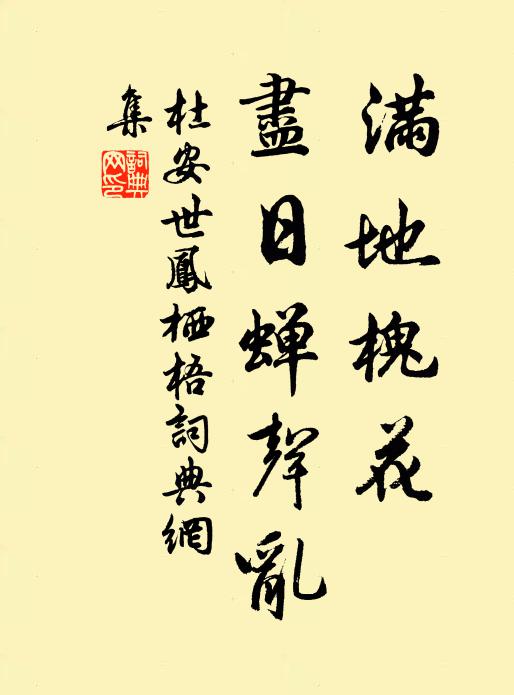 滿地槐花
盡日蟬聲亂
杜安世鳳栖梧詞典網
集
詞典網印